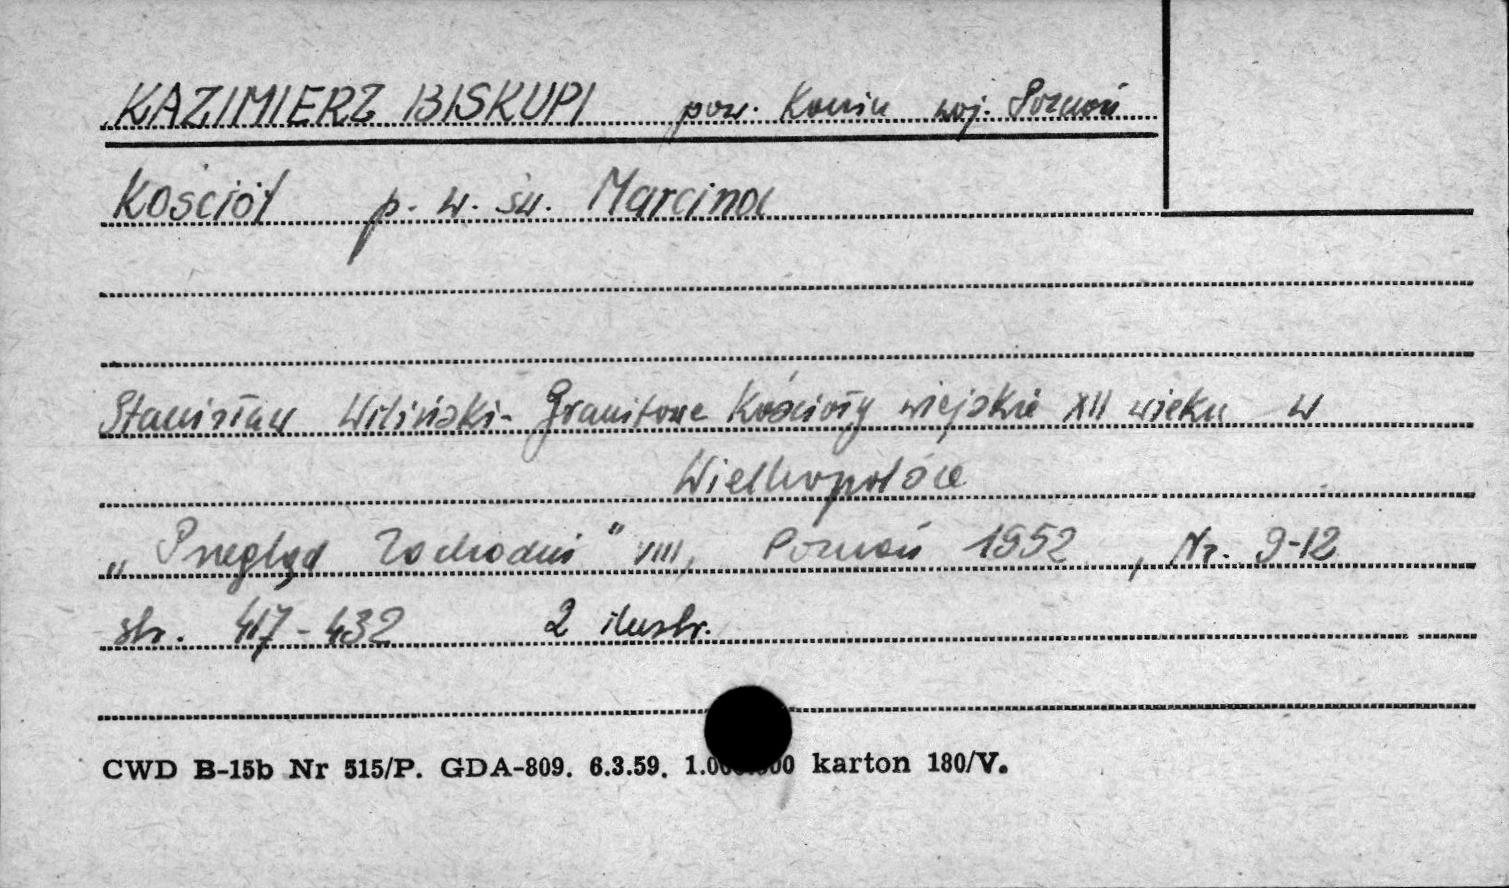 KAZIMIERZ BISKUPI pow. Konin woj. Poznań
Kościół p. w. św. Marcina
Stanisław Wiliński - Granitowe Kościoły wiejskie XII wieku w
Wielkopolsce
„Przegląd Zachodni" VIII, Poznań 1952, Nr. 9-12
str. 417-432 2 ilustr.
CWD B-15b Nr 515/P. GDA-809. 6.3.59. karton 180/V.